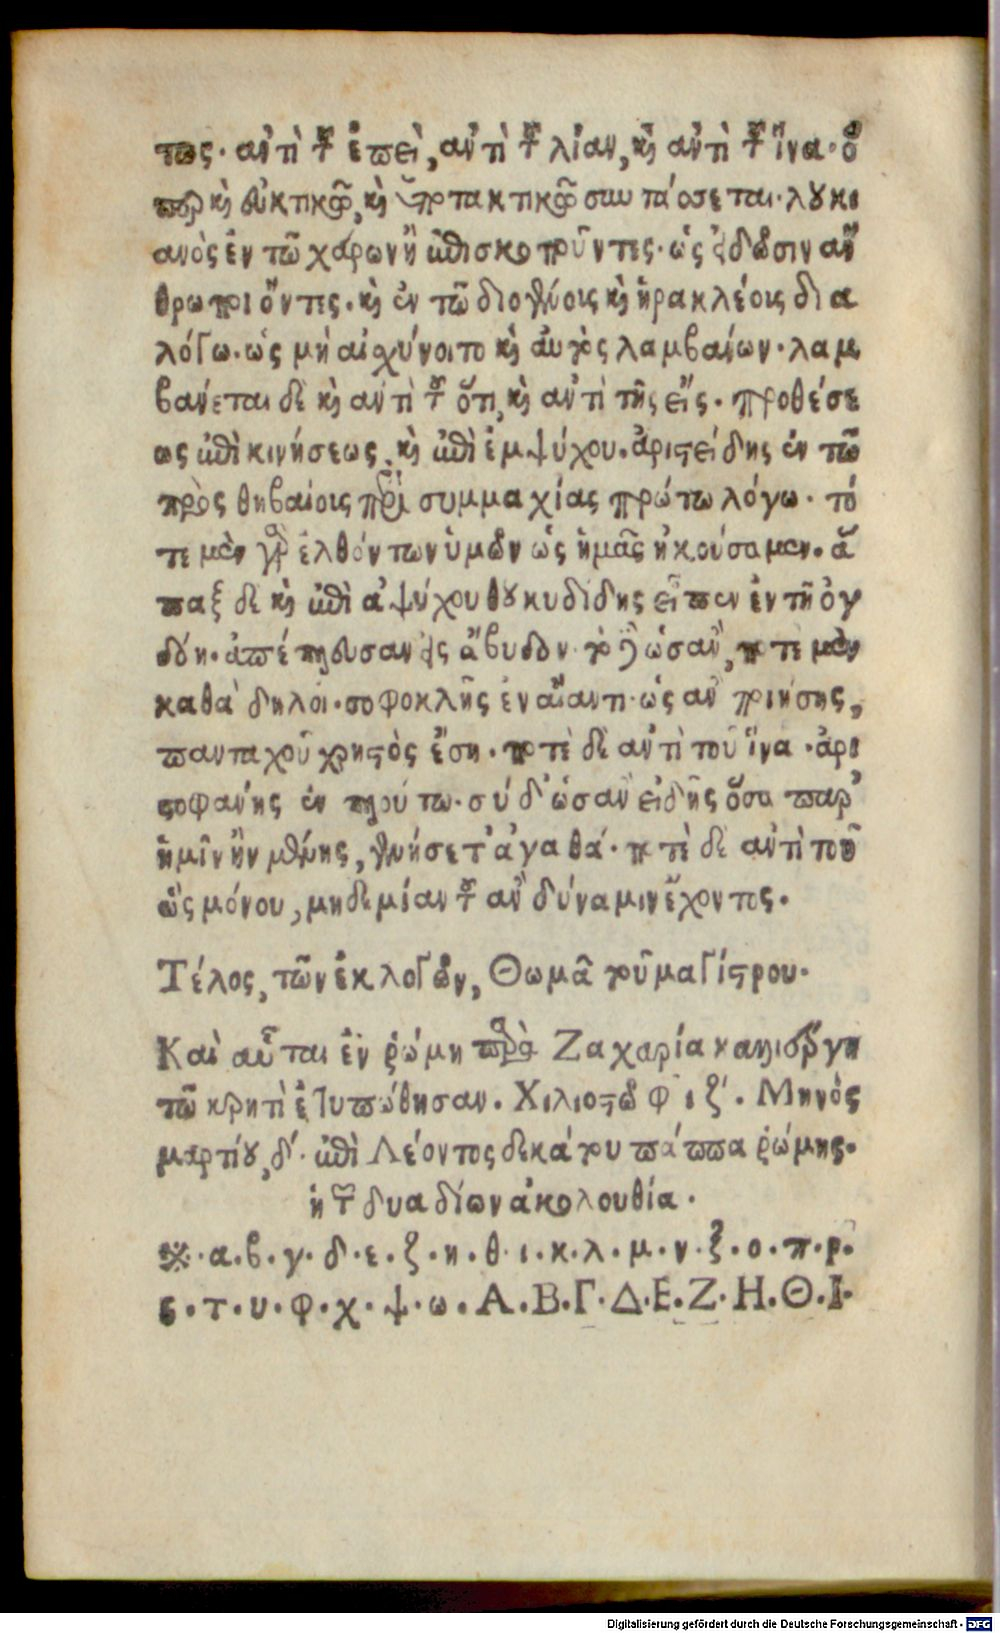 τως. ἀντὶ τοῦ ἐπεὶ, ἀντὶ τοῦ λίαν, καὶ ἀντὶ τοῦ ἵνα. ὅ
περ καὶ εὐκτικῷ, καὶ ὑποτακτικῷ συντάσσεται. λουκι
ανὸς ἐν τῶ χάρωνι ἐπισκοποῦντες. ὡς ἰδῶσιν ἄν
θρωποι ὄντες. καὶ ἐν τῶ διογένους καὶ ἡρακλέους δια
λόγω. ὡς μὴ αἰσχύνοιτο καὶ αὐτὸς λαμβάνων. λαμ
βάνεται δὲ καὶ ἀντὶ τοῦ ὅτι, καὶ ἀντὶ τῆς εἰς. προθέσε
ως ἐπὶ κινήσεως, καὶ ἐπὶ ἐμψύχου. ἀριστείδης ἐν τῶ
πρὸς θηβαίοις περὶ συμμαχίας πρώτω λόγω. τό
τε μὲν γὰρ ἐλθόντων ὑμῶν ὡς ἡμᾶς ἠκούσαμεν. ἅ
παξ δὲ καὶ ἐπὶ ἀψύχου θουκυδίδης εἶπεν ἐν τῆ ὀγ
δόη. ἀπέπλευσαν ἐς ἄβυδον. τὸ δὲ ὡσὰν, ποτὲ μὲν
καθὰ δηλοῖ. σοφοκλῆς ἐν αἴαντι. ὡς ἂν ποιήσης,
πανταχοῦ χρηστὸς ἔση. ποτὲ δὲ ἀντὶ τοῦ ἵνα. ἀρι
στοφάνης ἐν πλούτω. σύ δ' ὡσὰν εἰδῆς ὅσα παρ'
ἡμῖν ἢν μένης, γενήσετ' ἀγαθά. ποτὲ δὲ ἀντὶ τοῦ
ὡς μόνου, μηδεμίαν τοῦ ἂν δύναμιν ἔχοντος.
Τέλος, τῶν ἐκλογῶν, Θωμᾶ τοῦ μαγίστρου.
Καὶ αὗται ἐν ῥώμη παρὰ Ζαχαρία καλλιέργη
τῶ κρητὶ ἐτυπώθησαν. Χιλιοστῶ φ ι ζ'. Μηνὸς
μαρτίου, δ'. ἐπὶ Λέοντος δεκάτου πάππα ῥώμης.
ἡ τῶν δυαδίων ἀκολουθία.
※. α. β. γ. δ. ε. ζ. η. θ. ι. κ. λ. μ. ν. ξ. ο. π. ρ.
ς. τ. υ. φ. χ. ψ. ω. Α. Β. Γ. Δ. Ε. Ζ. Η. Θ. Ι.
Digitalisierung gefördert durch die Deutsche Forschungsgemeinschaft - DFG